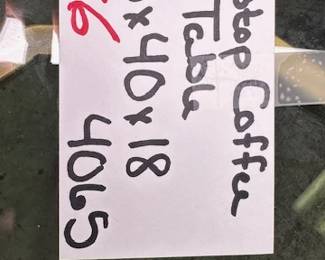 stop Coffee
Table
x40x18
4065
6